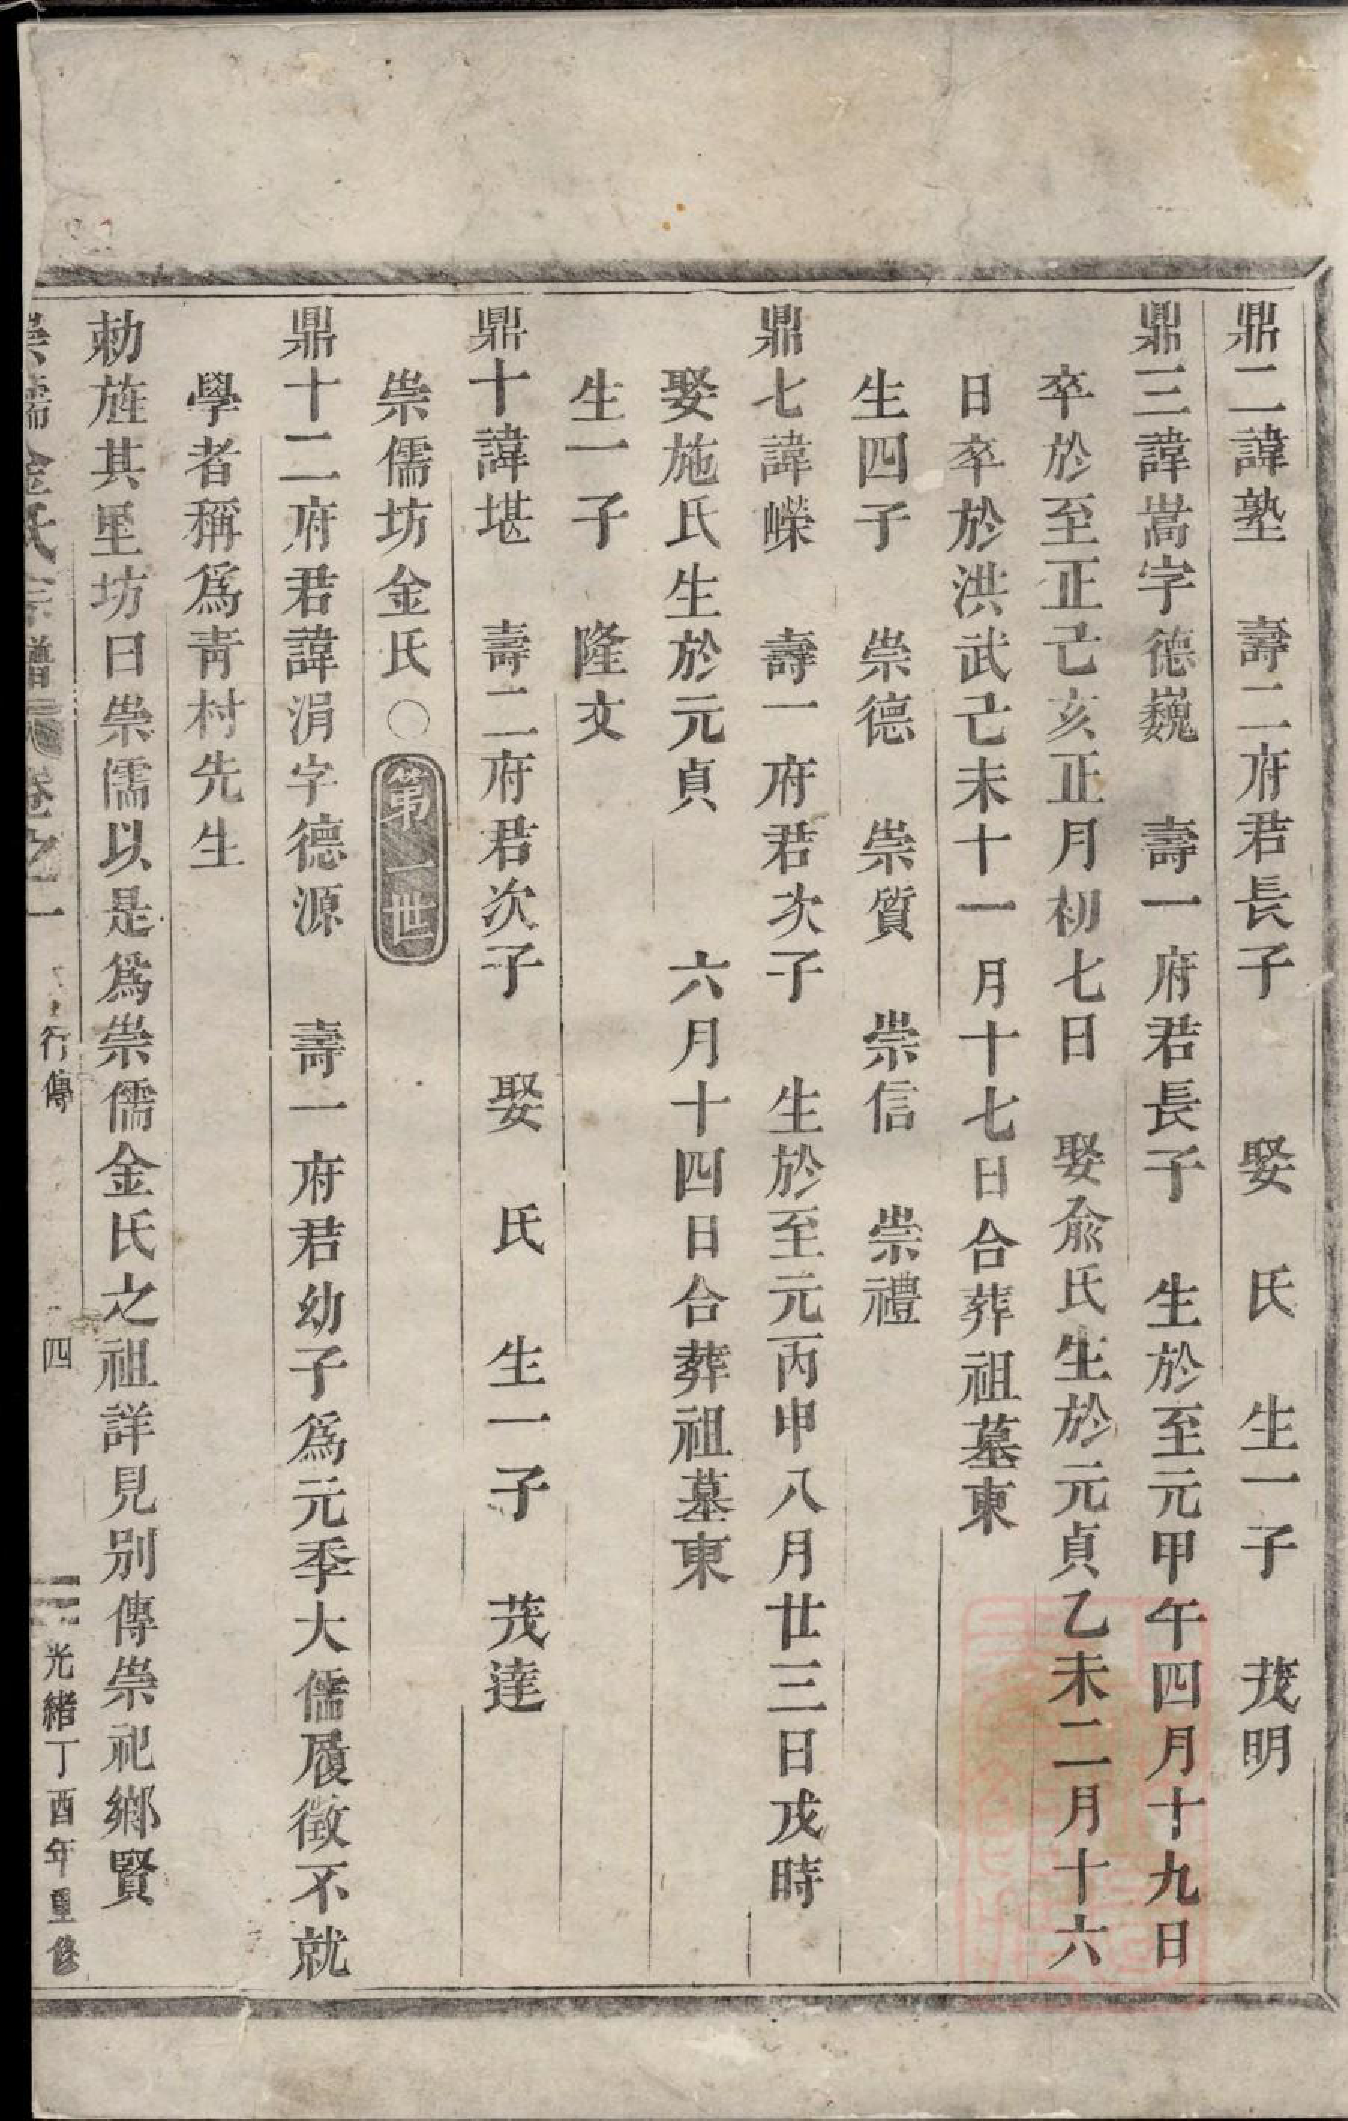 鼎二諱塾　壽二府君長子　　娶　氏　生一子　茂明
鼎三諱嵩字德巍　壽一府君長子　生於至元甲午四月十九日
卒於至正己亥正月初七日　娶俞氏生於元貞乙未二月十六
日卒於洪武己未十一月十七日合葬祖墓東
生四子　崇德　崇質　崇信　崇禮
鼎七諱嶸　壽一府君次子　生於至元丙申八月廿三日戌時
娶施氏生於元貞　　六月十四日合葬祖墓東
生一子　隆文
鼎十諱堪　壽二府君次子　娶　氏　生一子　茂達
崇儒坊金氏○第一世
鼎十二府君諱涓字德源　壽一府君幼子爲元季大儒屢徵不就
學者稱爲青村先生
勅旌其里坊曰崇儒以是爲崇儒金氏之祖詳見別傳崇祀鄉賢
崇儒金氏宗譜　卷之一　行傳　四　光緒丁酉年重修